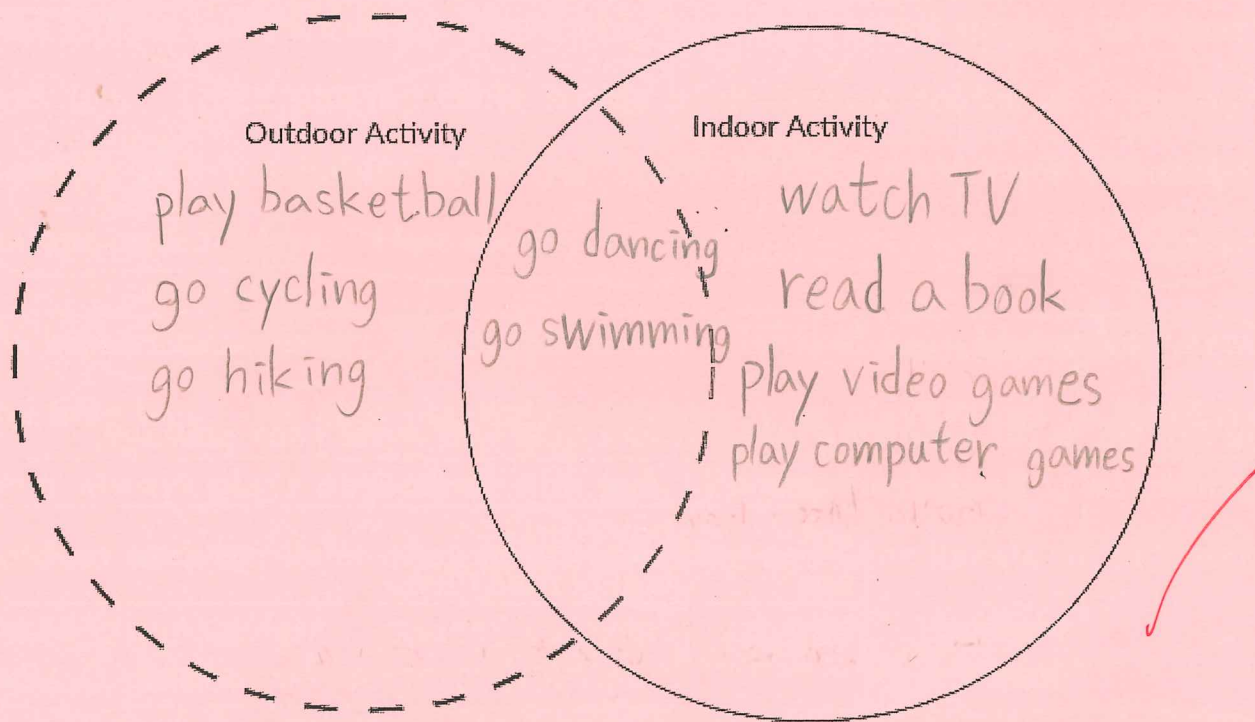 Outdoor Activity
play basketball
go cycling
go hiking
go dancing
go swimming
Indoor Activity
watch TV
read a book
play video games
play computer games